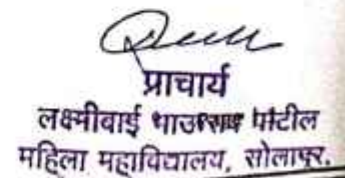 प्राचार्य
लक्ष्मीबाई भाउराव पाटील
महिला महाविद्यालय, सोलापूर.